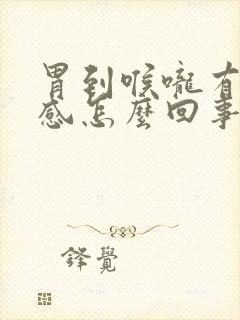 胃到喉嚨有
感怎麼回事
鋒覺